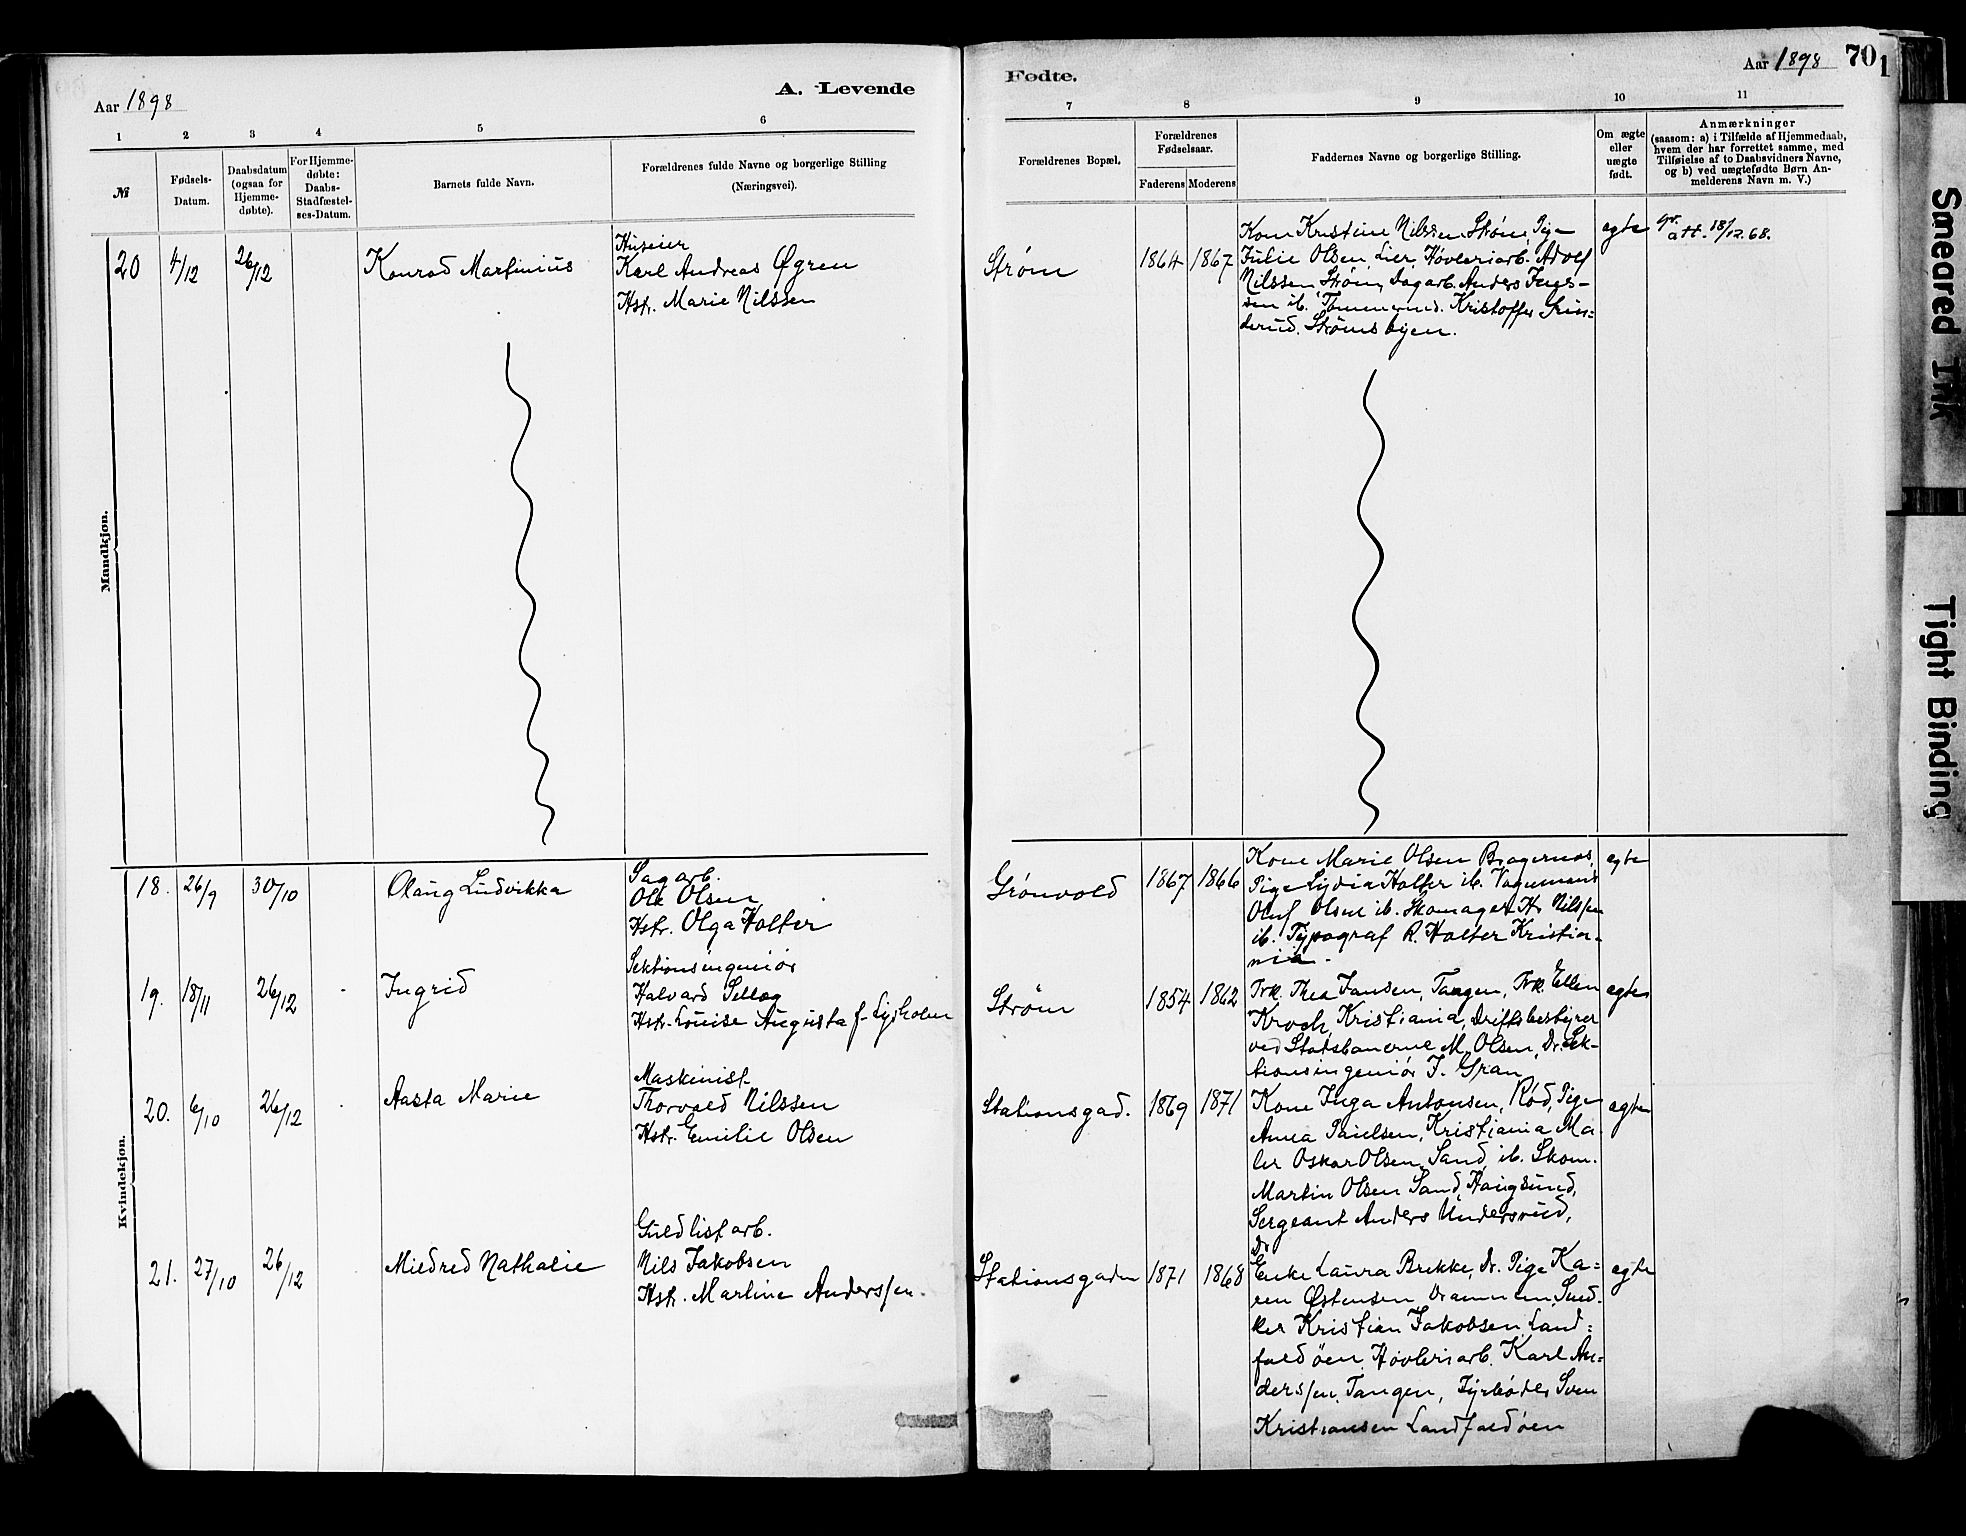 A. Levende
Aar 1898
1 2 3 4 5 6
№
Fødsels-
Datum.
Daabsdatum
(ogsaa for
Hjemme-
døbte).
For Hjemme-
døbte:
Daabs-
Stadfæstel-
ses-Datum.
Barnets fulde Navn.
Forældrenes fulde Navne og borgerlige Stilling
(Næringsvei).
Mandkjøn.
20 4/12 26/12 Konrad Martinius
Huseier
Karl Andreas Øgren
Hstr. Marie Nilssen
Kvindekjøn.
18. 26/9 30/10 Olaug Ludvikka
Sagarb.
Ole Olsen
Hstr. Olga Holter
19. 18/11 26/12 Ingrid
Sektionsingeniør
Halvard
Hstr. Louise Augusta f. Lysholm
20. 6/10 26/12 Aasta Marie
Maskinist
Thorvald Nilssen
Hstr. Emilie Olsen
21. 27/10 26/12 Mildred Nathalie
Guldlistarb.
Nils Jakobsen
Hstr. Martine Anderssen.
Fødte.
Aar 1898 70
1
7 8 9 10 11
Forældrenes Bopæl.
Forældrenes
Fødselsaar.
Faderens Moderens
Faddernes Navne og borgerlige Stilling.
Om ægte
eller
uægte
født.
Anmærkninger
(saasom: a) i Tilfælde af Hjemmedaab,
hvem der har forrettet samme, med
Tilføielse af to Daabsvidners Navne,
og b) ved uægtefødte Børn An-
melderens Navn m. V.)
Strøm 1864 1867
Kone Kristine Nilssen Strøm, Pige
Julie Olsen Lier, Høvleriarb. Adolf
Nilssen Strøm, Dagarb. Anders
ib. Kristoffer
Strømsbyen.
egte
att. 18/12.68.
Grønvold 1867 1866
Kone Marie Olsen Bragernes,
Pige Lydia Holter ib. Vognmand
Oluf Olsen ib. Skomager Kr Nilssen
ib. Typograf R. Holter Kristia-
nia.
egte
Strøm 1854 1862
Frk. Thea Jansen, Tangen, Frk. Ellen
Kristiania, Driftsbestyrer
ved Statsbanerne M. Olsen, Dr. Sek-
tionsingeniør J. Gran
egte
Stationsgad. 1869 1871
Kone Inga Antonsen, Rød, Pige
Anna Kristiania Ma
ler Oskar Olsen Sand, ib. Skom.
Martin Olsen Sand, Haugsund,
Sergeant Anders
Dr
egte
Stationsgaden 1871 1868
Enke Laura Brekke, Dr. Pige Ka=
ren Østensen Drammen, Sned-
ker Kristian Jakobsen Land=
faldøen, Høvleriarb. Karl An=
derssen, Tangen, Fyrbøder Sven
Kristiansen Landfaldøen
egte
Smeared Ink
Tight Binding